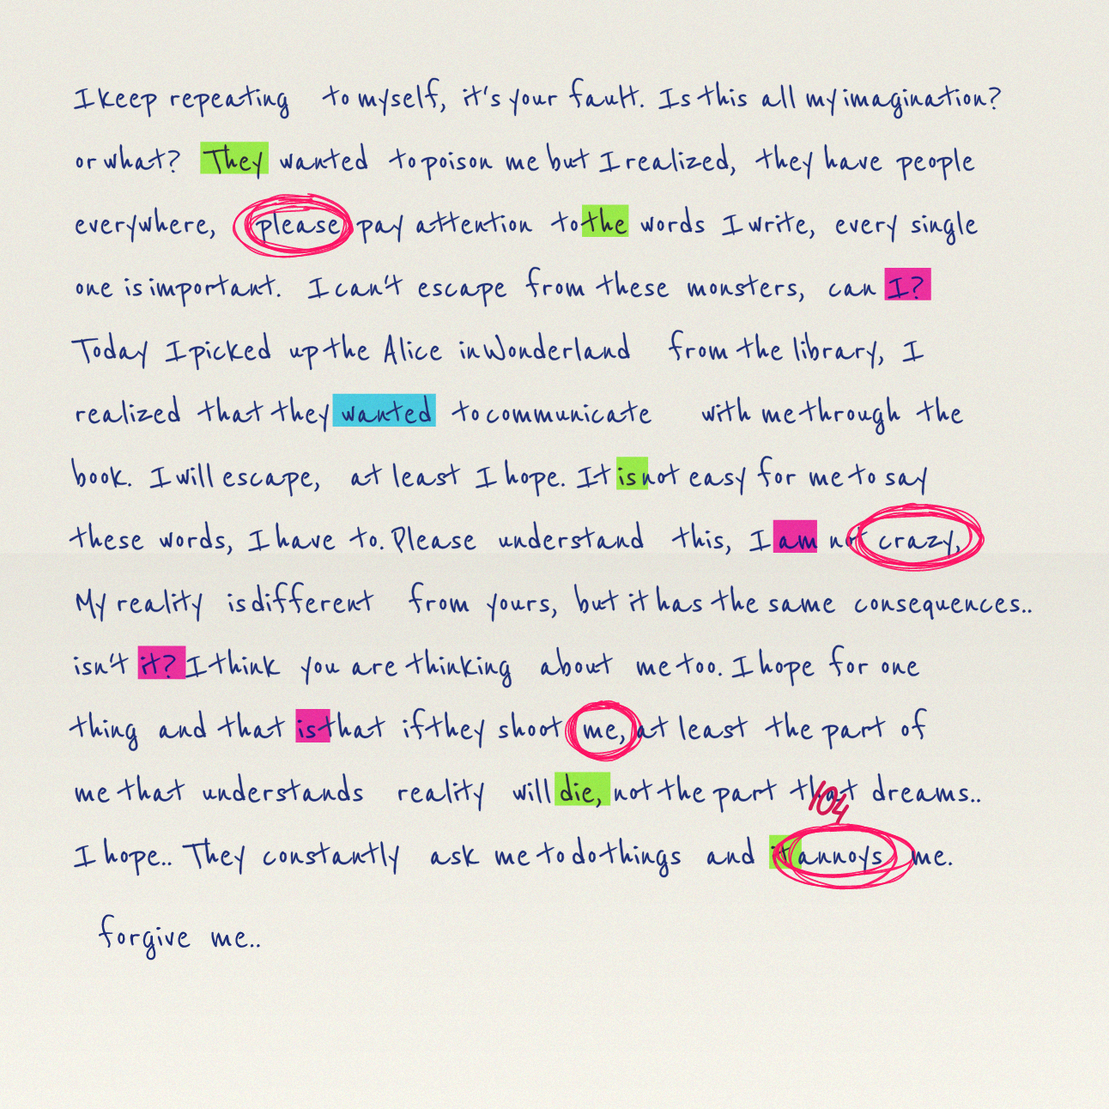 I keep repeating to myself, it's your fault. Is this all my imagination?
or what? They wanted to poison me but I realized, they have people
everywhere, please pay attention to the words I write, every single
one is important. I can't escape from these monsters, can I?
Today I picked up the Alice in Wonderland from the library, I
realized that they wanted to communicate with me through the
book. I will escape, at least I hope. It is not easy for me to say
these words, I have to. Please understand this, I am not crazy,
My reality is different from yours, but it has the same consequences..
isn't it? I think you are thinking about me too. I hope for one
thing and that is that if they shoot me, at least the part of
me that understands reality will die, not the part that dreams..
104
I hope.. They constantly ask me to do things and it annoys me.
forgive me..